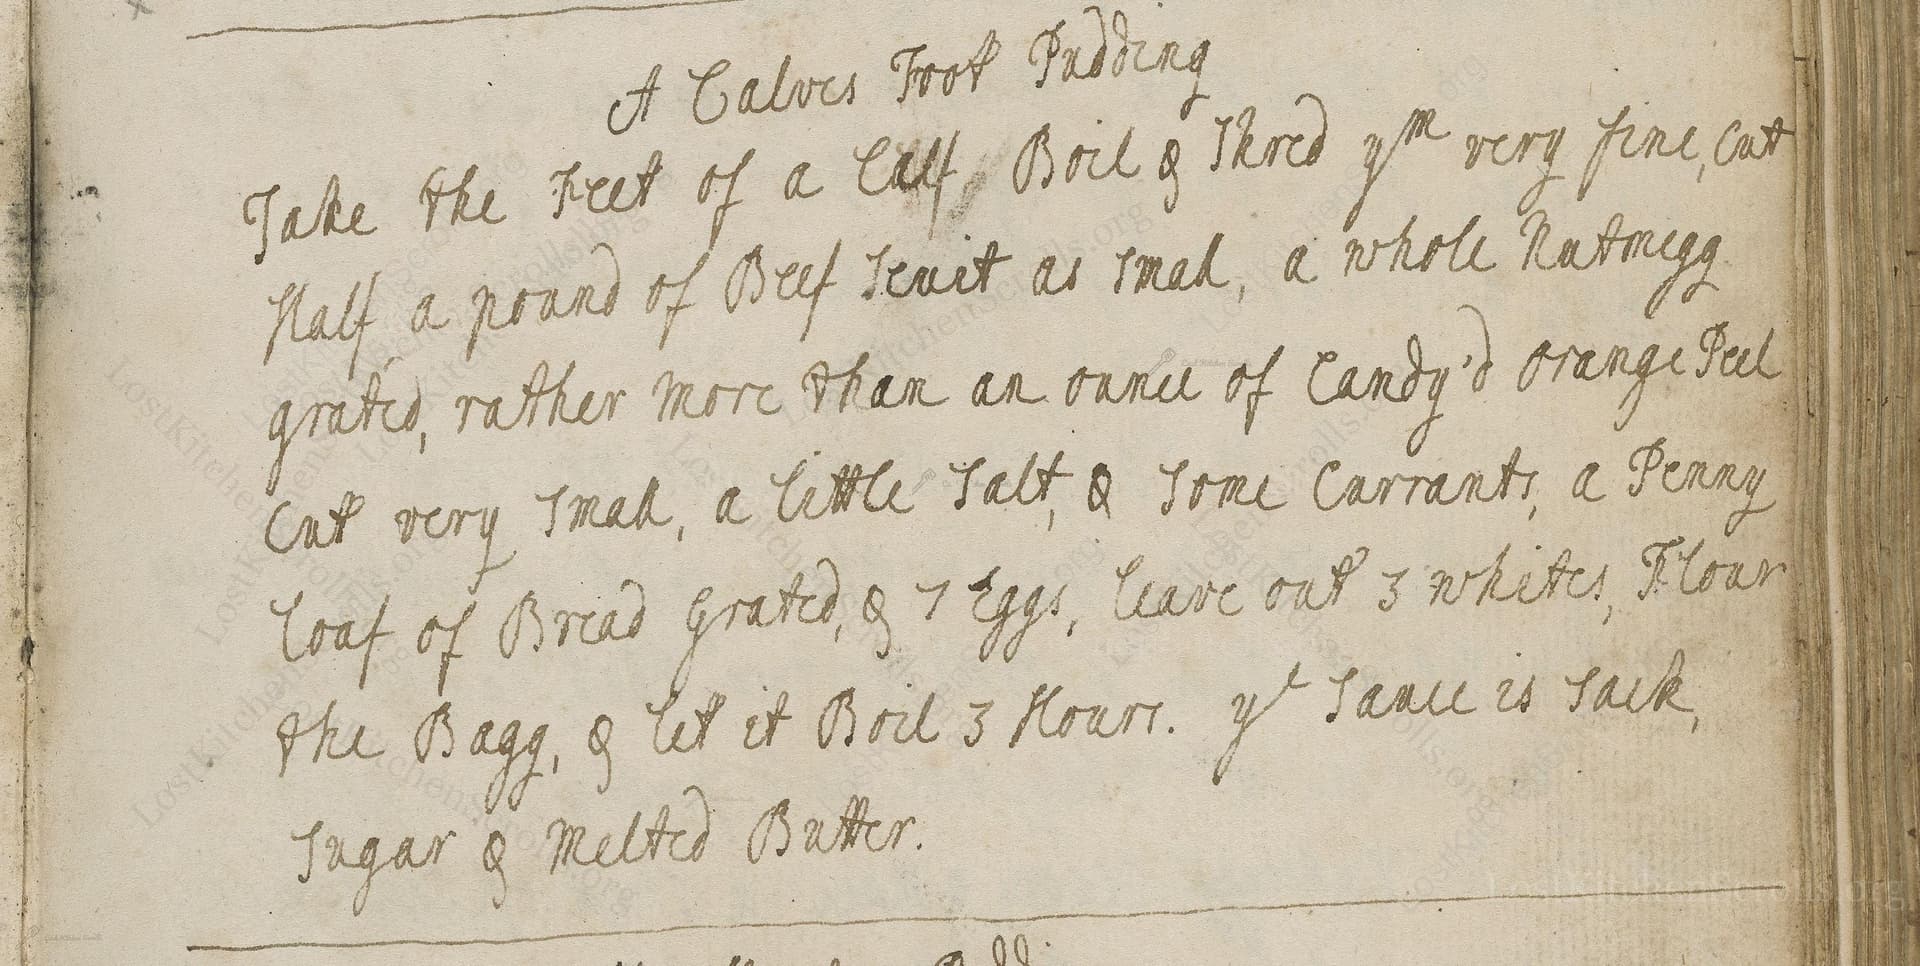 A Calves Foot Pudding
Take the Feet of a Calf, Boil & Shred yᵐ very fine, Cut
Half a pound of Beef Seuit as Small, a whole Nutmegg
grated, rather More than an ounce of Candy'd Orange Peel
Cut very Small, a little Salt, & Some Currants, a Penny
loaf of Bread Grated, & 7 Eggs, leave out 3 whites, Flour
the Bagg, & let it Boil 3 Hours. yᵉ Sauce is Sack,
Sugar & Melted Butter.
LostKitchenScrolls.org